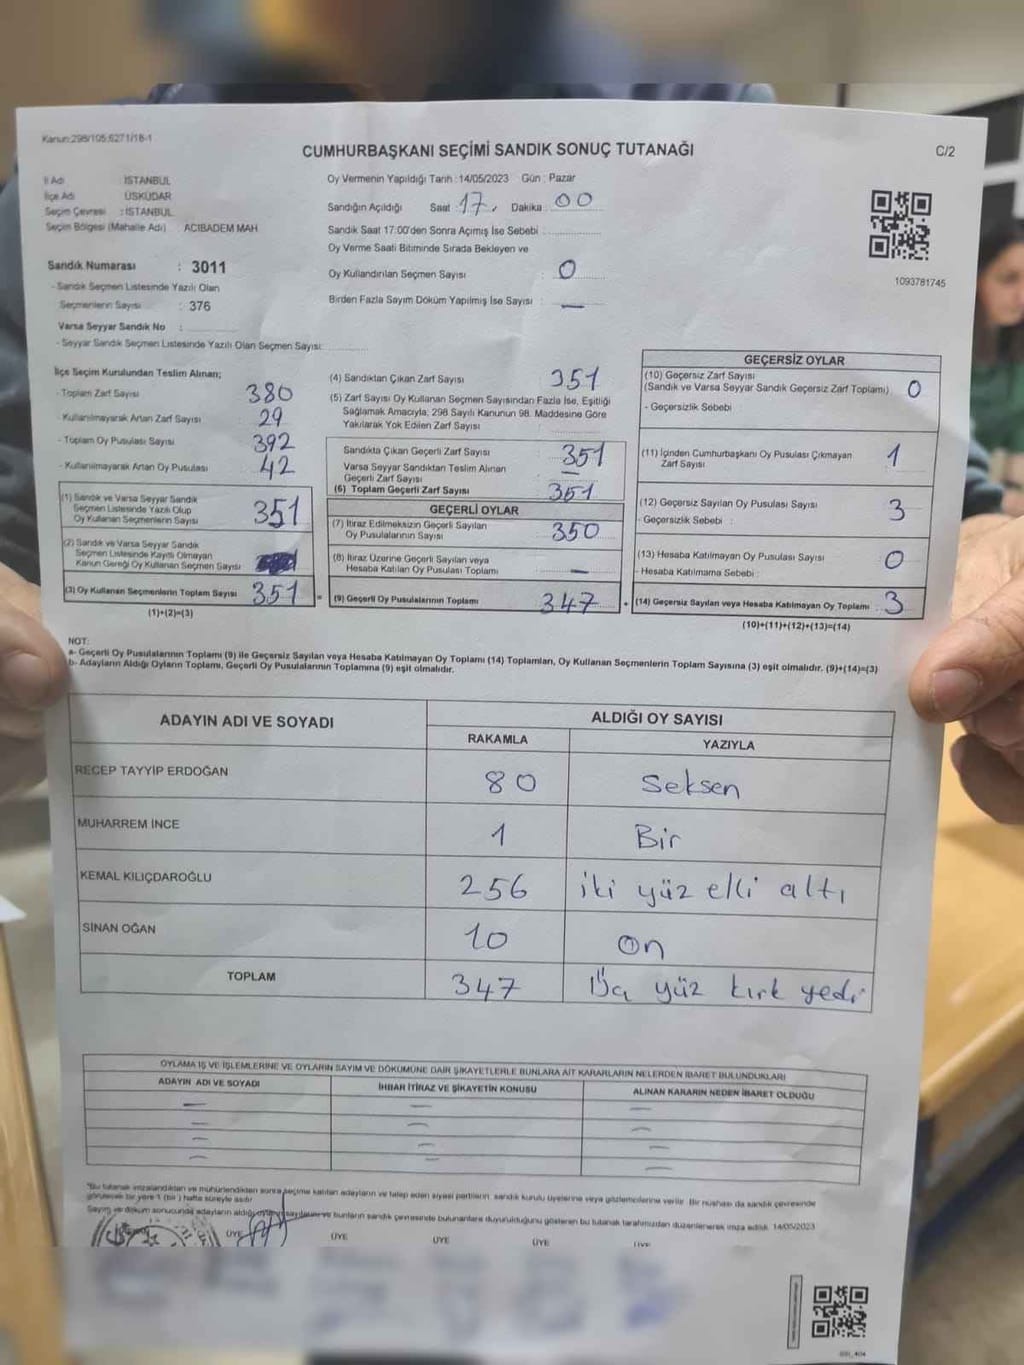 Kanun:298/105;6271/18-1
CUMHURBAŞKANI SEÇİMİ SANDIK SONUÇ TUTANAĞI
C/2
İl Adı : İSTANBUL
İlçe Adı : ÜSKÜDAR
Seçim Çevresi : İSTANBUL
Seçim Bölgesi (Mahalle Adı) : ACIBADEM MAH
Sandık Numarası : 3011
- Sandık Seçmen Listesinde Yazılı Olan
Seçmenlerin Sayısı : 376
Varsa Seyyar Sandık No :
- Seyyar Sandık Seçmen Listesinde Yazılı Olan Seçmen Sayısı:
Oy Vermenin Yapıldığı Tarih : 14/05/2023 Gün : Pazar
Sandığın Açıldığı Saat : 17, Dakika : 00
Sandık Saat 17:00'den Sonra Açımış İse Sebebi :
Oy Verme Saati Bitiminde Sırada Bekleyen ve
Oy Kullandırılan Seçmen Sayısı : 0
Birden Fazla Sayım Döküm Yapılmış İse Sayısı : —
1093781745
İlçe Seçim Kurulundan Teslim Alınan;
- Toplam Zarf Sayısı 380
- Kullanılmayarak Artan Zarf Sayısı 29
- Toplam Oy Pusulası Sayısı 392
- Kullanılmayarak Artan Oy Pusulası 42
(1) Sandık ve Varsa Seyyar Sandık
Seçmen Listesinde Yazılı Olup
Oy Kullanan Seçmenlerin Sayısı 351
(2) Sandık ve Varsa Seyyar Sandık
Seçmen Listesinde Kayıtlı Olmayan
Kanun Gereği Oy Kullanan Seçmen Sayısı
(3) Oy Kullanan Seçmenlerin Toplam Sayısı 351
(1)+(2)=(3)
(4) Sandıktan Çıkan Zarf Sayısı 351
(5) Zarf Sayısı Oy Kullanan Seçmen Sayısından Fazla İse, Eşitliği
Sağlamak Amacıyla; 298 Sayılı Kanunun 98. Maddesine Göre
Yakılarak Yok Edilen Zarf Sayısı :
Sandıkta Çıkan Geçerli Zarf Sayısı 351
Varsa Seyyar Sandıktan Teslim Alınan
Geçerli Zarf Sayısı —
(6) Toplam Geçerli Zarf Sayısı 351
GEÇERLİ OYLAR
(7) İtiraz Edilmeksizin Geçerli Sayılan
Oy Pusulalarının Sayısı 350
(8) İtiraz Üzerine Geçerli Sayılan veya
Hesaba Katılan Oy Pusulası Toplamı —
= (9) Geçerli Oy Pusulalarının Toplamı 347
GEÇERSİZ OYLAR
(10) Geçersiz Zarf Sayısı
(Sandık ve Varsa Seyyar Sandık Geçersiz Zarf Toplamı) 0
- Geçersizlik Sebebi
(11) İçinden Cumhurbaşkanı Oy Pusulası Çıkmayan
Zarf Sayısı 1
(12) Geçersiz Sayılan Oy Pusulası Sayısı 3
- Geçersizlik Sebebi :
(13) Hesaba Katılmayan Oy Pusulası Sayısı 0
- Hesaba Katılmama Sebebi :
+ (14) Geçersiz Sayılan veya Hesaba Katılmayan Oy Toplamı : 3
(10)+(11)+(12)+(13)=(14)
NOT:
a- Geçerli Oy Pusulalarının Toplamı (9) ile Geçersiz Sayılan veya Hesaba Katılmayan Oy Toplamı (14) Toplamları, Oy Kullanan Seçmenlerin Toplam Sayısına (3) eşit olmalıdır. (9)+(14)=(3)
b- Adayların Aldığı Oyların Toplamı, Geçerli Oy Pusulalarının Toplamına (9) eşit olmalıdır.
ADAYIN ADI VE SOYADI ALDIĞI OY SAYISI
RAKAMLA YAZIYLA
RECEP TAYYİP ERDOĞAN 80 Seksen
MUHARREM İNCE 1 Bir
KEMAL KILIÇDAROĞLU 256 iki yüz elli altı
SİNAN OĞAN 10 On
TOPLAM 347 Üç yüz kırk yedi
OYLAMA İŞ VE İŞLEMLERİNE VE OYLARIN SAYIM VE DÖKÜMÜNE DAİR ŞİKAYETLERLE BUNLARA AİT KARARLARIN NELERDEN İBARET BULUNDUKLARI
ADAYIN ADI VE SOYADI İHBAR İTİRAZ VE ŞİKAYETİN KONUSU ALINAN KARARIN NEDEN İBARET OLDUĞU
— — —
— — —
— — —
— — —
"Bu tutanak imzalandıktan ve mühürlendikten sonra seçime katılan adayların ve talep eden siyasi partilerin sandık kurulu üyelerine veya gözlemcilerine verilir. Bir nüshası da sandık çevresinde
görülecek bir yere 1 (bir) hafta süreyle asılır.
Sayım ve döküm sonucunda adayların aldığı ve bunların sandık çevresinde bulunanlara duyurulduğunu gösteren bu tutanak tarafımızdan düzenlenerek imza edildi. 14/05/2023
ÜYE ÜYE ÜYE ÜYE ÜYE